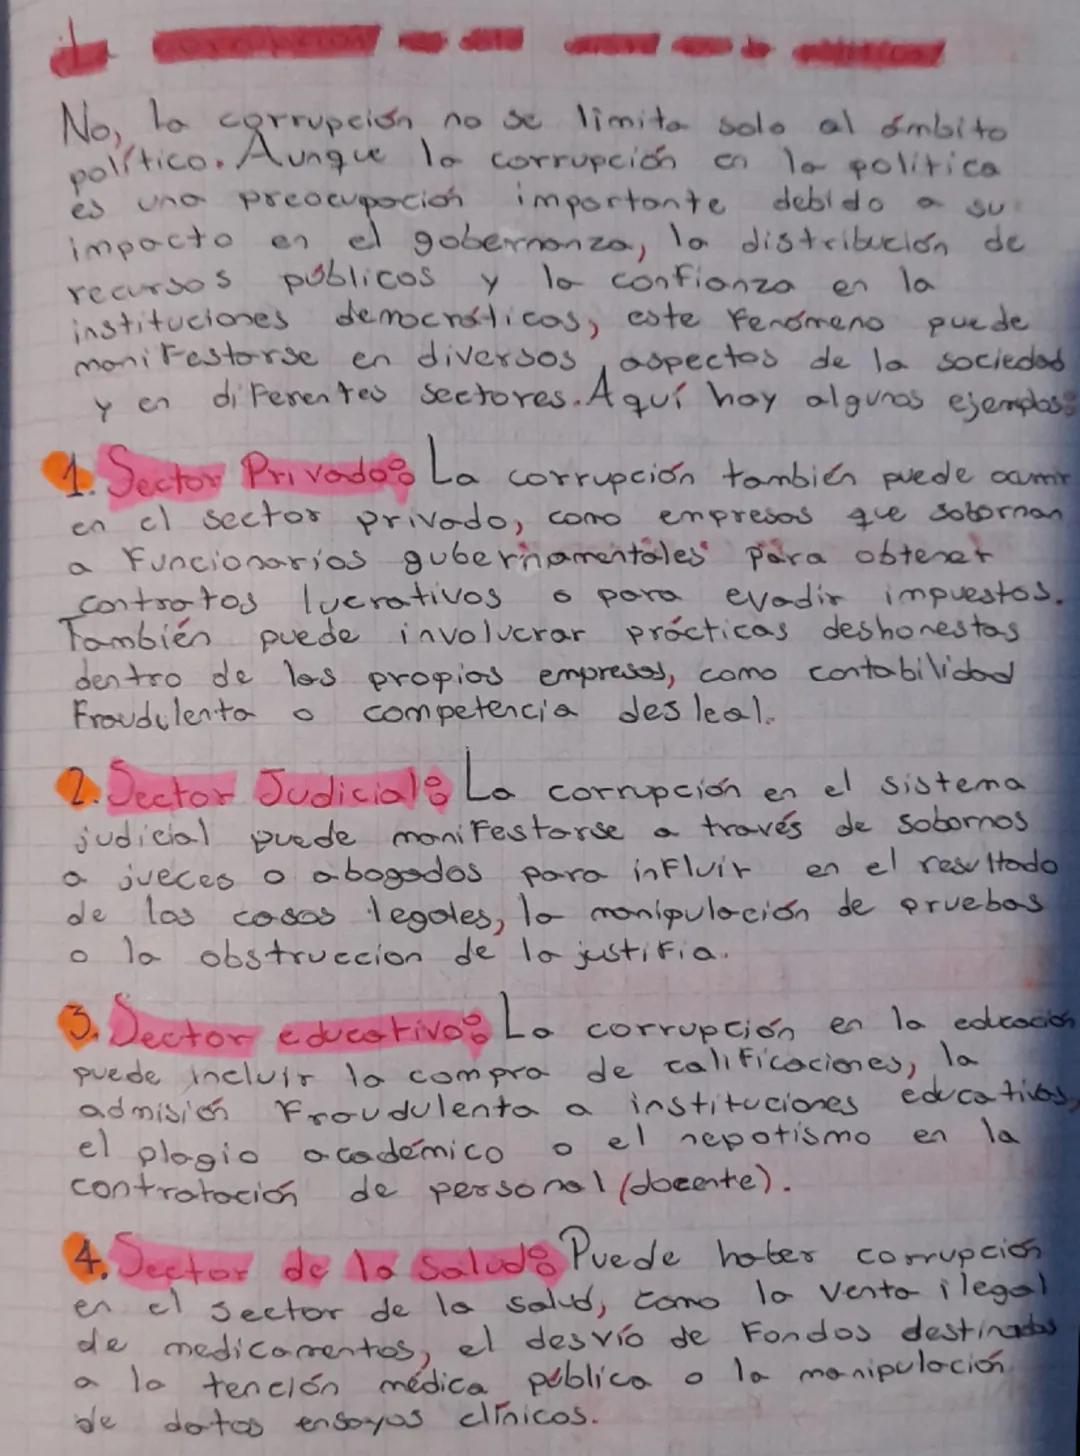 No, la corrupción no se limita solo al ámbito
político. Aunque la corrupción en la política
es una preocupación importante debido a su
impacto en el gobernanza, la distribución de
recursos públicos y la confianza en la
instituciones democráticas, este fenómeno puede
manifestarse en diversos aspectos de la sociedad
y en diferentes sectores. Aquí hay algunos ejemplos:
1. Sector Privado: La corrupción también puede ocurrir
en el sector privado, como empresas que sobornan
a funcionarios gubernamentales para obtener
contratos lucrativos o para evadir impuestos.
También puede involucrar prácticas deshonestas
dentro de las propias empresas, como contabilidad
fraudulenta o competencia desleal.
2. Sector Judicial: La corrupción en el sistema
judicial puede manifestarse a través de sobornos
a jueces o abogados para influir en el resultado
de los casos legales, la manipulación de pruebas
o la obstruccion de la justifia.
3. Sector educativo: La corrupción en la educación
puede incluir la compra de calificaciones, la
admisión fraudulenta a instituciones educativas,
el plagio académico o el nepotismo en la
contratación de personal (docente).
4. Sector de la Salud: Puede haber corrupción
en el sector de la salud, como la venta ilegal
de medicamentos, el desvío de fondos destinados
a la tención médica pública o la manipulación
de datos ensayos clínicos.